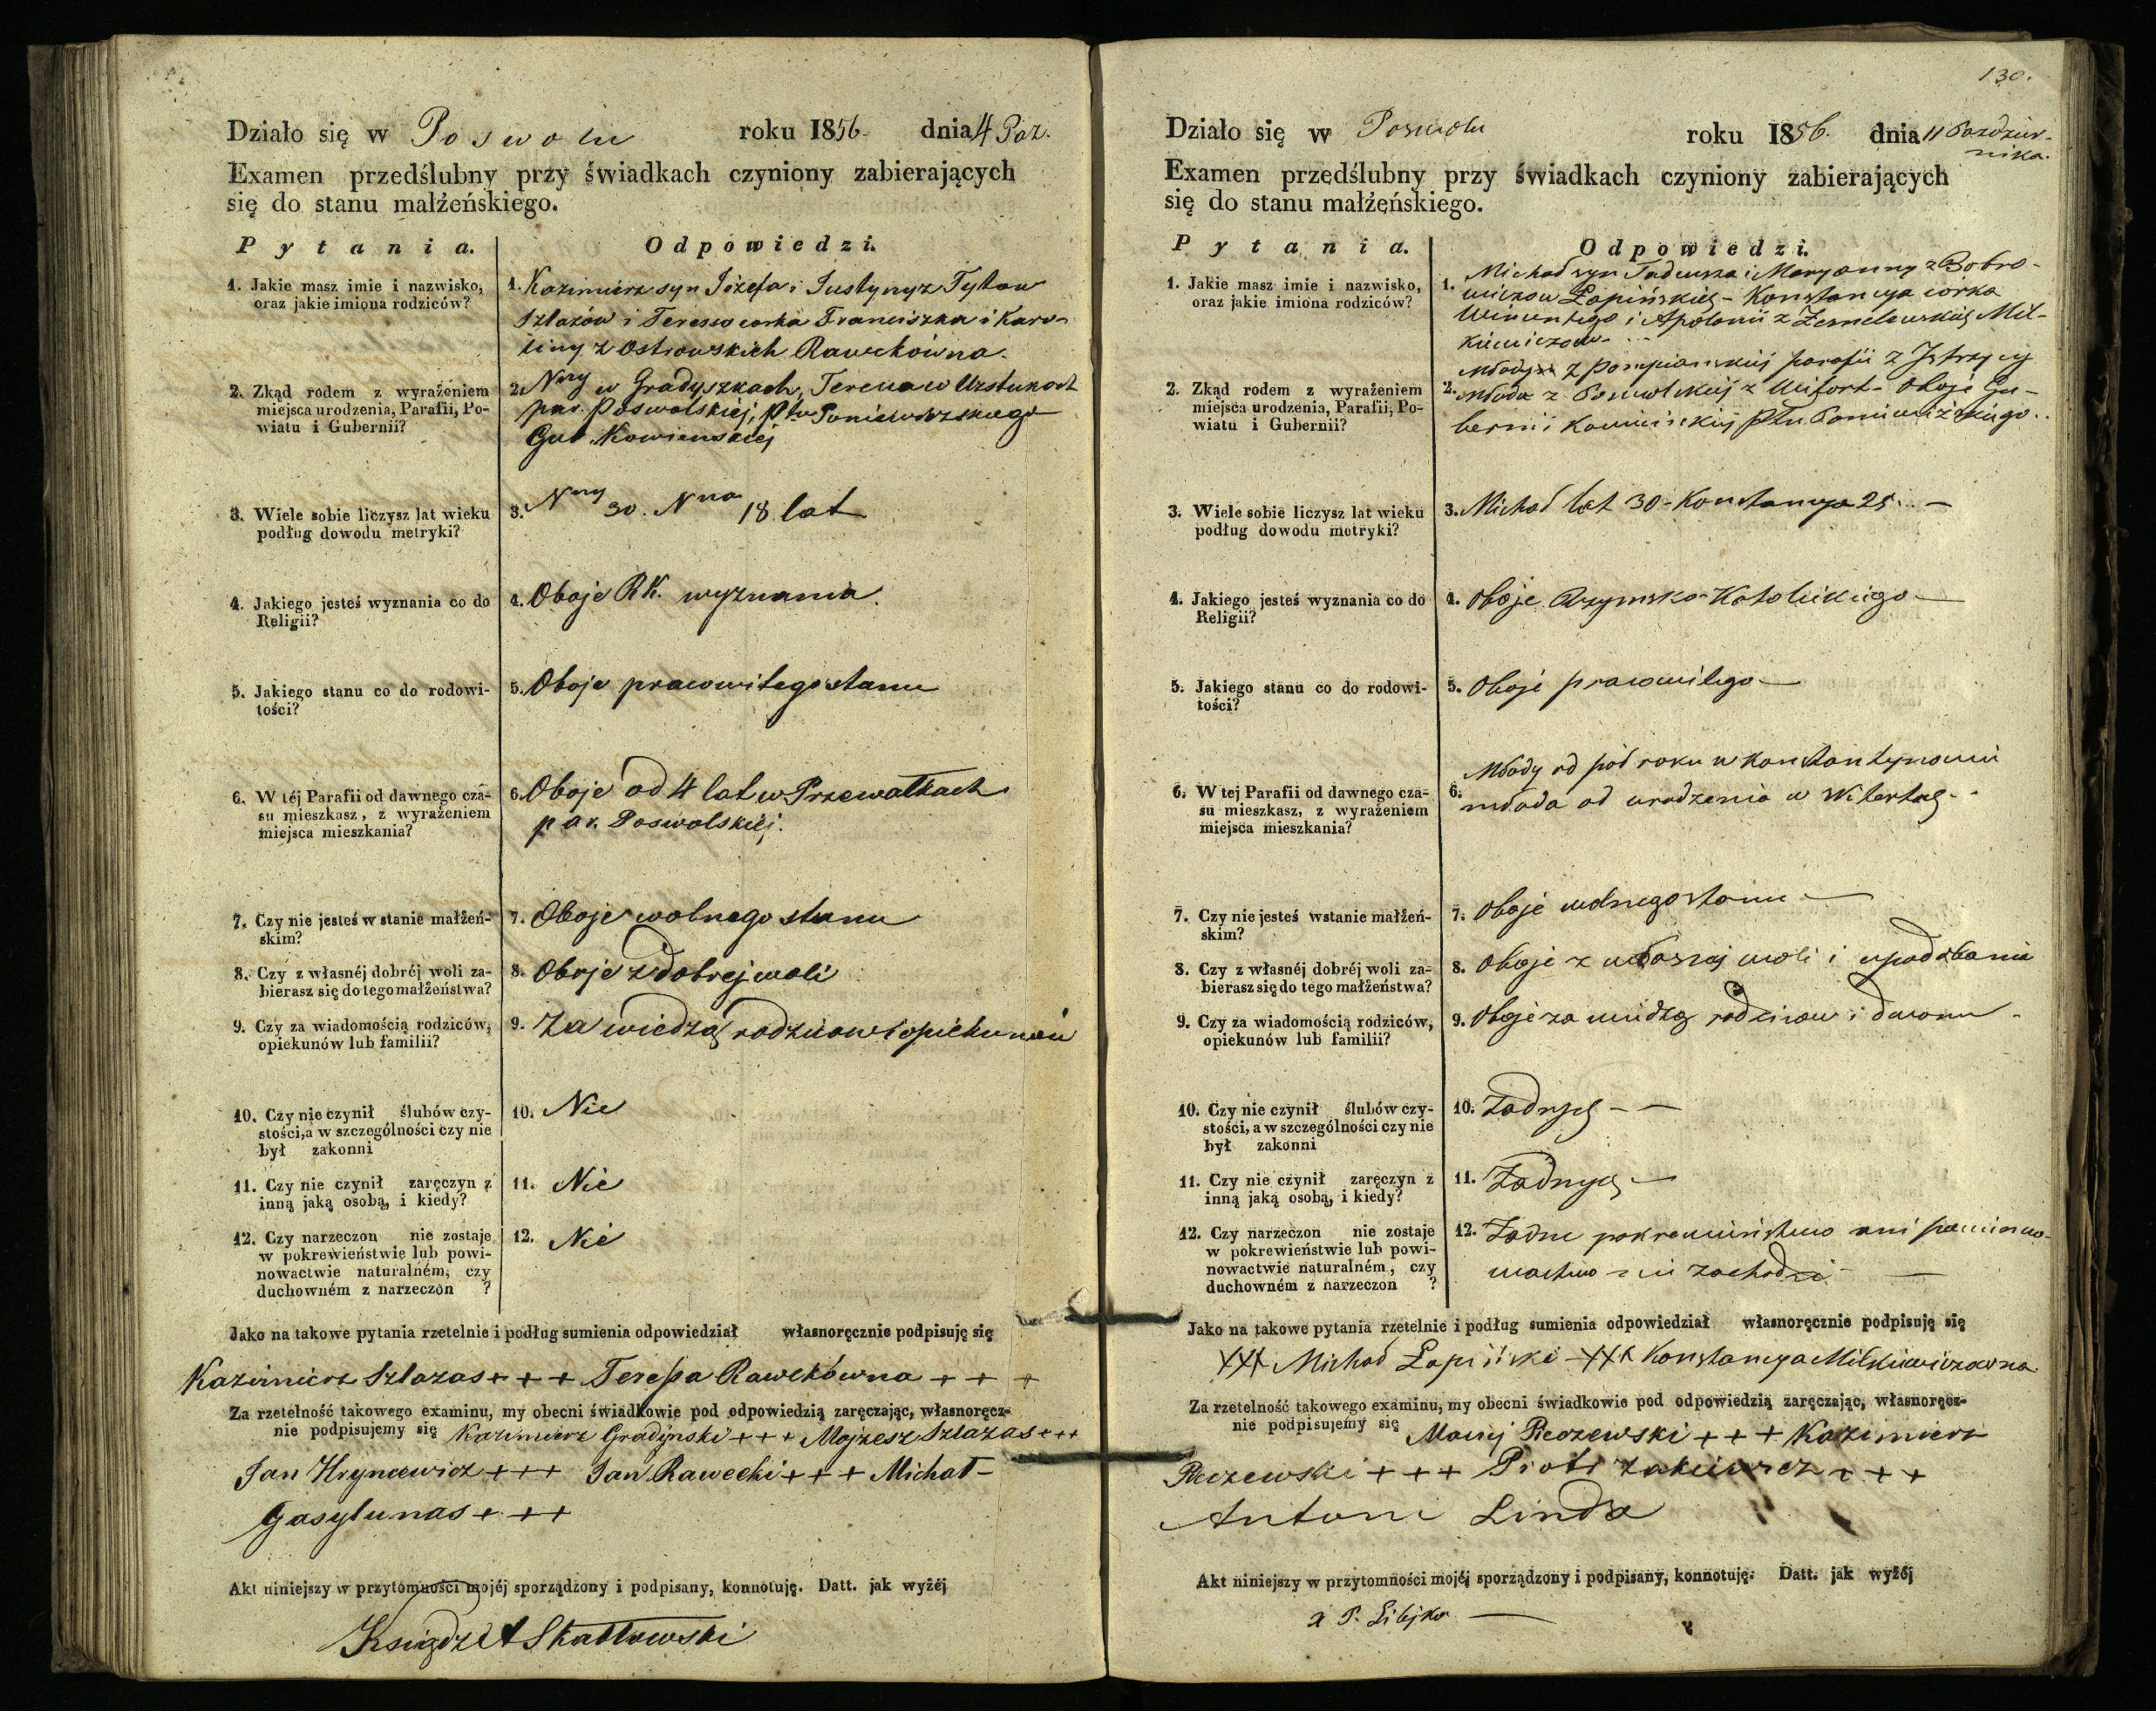 Działo się w Poswolu roku 1856. dnia 4 Paz.
Examen przedślubny przy świadkach czyniony zabierających
się do stanu małżeńskiego.
Pytania. Odpowiedzi.
1. Jakie masz imie i nazwisko,
oraz jakie imiona rodziców?
1. Kazimierz syn Józefa i Justyny z Tytow
Szlazów i Teressa corka Franciszka i Karo-
liny z Ostrowskich Raweckówna.
2. Zkąd rodem z wyrażeniem
miejsca urodzenia, Parafii, Po-
wiatu i Gubernii?
2. Nny w Gradyszkach, Teressa w Uzstukach
par. Poswolskiéj, Ptu Poniewiezskiego
Gub. Kowienskiej
3. Wiele sobie liczysz lat wieku
podług dowodu metryki?
3. Nny 30. Nna 18 lat
4. Jakiego jesteś wyznania co do
Religii?
4. Oboje RK. wyznania.
5. Jakiego stanu co do rodowi-
tości?
5. Oboje prawowitego stanu
6. W téj Parafii od dawnego cza-
su mieszkasz, z wyrażeniem
miejsca mieszkania?
6. Oboje od 4 lat w Przewałkach
par. Poswolskiéj.
7. Czy nie jesteś w stanie małżeń-
skim?
7. Oboje wolnego stanu
8. Czy z własnéj dobréj woli za-
bierasz się do tego małżeństwa?
8. Oboje z dobrej woli
9. Czy za wiadomością rodziców,
opiekunów lub familii?
9. Za wiedzą rodzicow i opiekunów
10. Czy nie czynił ślubów czy-
stości, a w szczególności czy nie
był zakonni
10. Nie
11. Czy nie czynił zaręczyn z
inną jaką osobą, i kiedy?
11. Nie
12. Czy narzeczon nie zostaje
w pokrewieństwie lub powi-
nowactwie naturalném, czy
duchowném z narzeczon ?
12. Nie
Jako na takowe pytania rzetelnie i podług sumienia odpowiedział własnoręcznie podpisuję się
Kazimierz Szlazas +++ Teressa Raweckówna +++
Za rzetelność takowego examinu, my obecni świadkowie pod odpowiedzią zaręczając, własnoręcz-
nie podpisujemy się Kazimierz Gradynski +++ Mojzesz Szlazas +++
Jan Hryncewicz +++ Jan Rawecki +++ Michał
Gasylunas +++
Akt niniejszy w przytomności mojéj sporządzony i podpisany, konnotuję. Datt. jak wyżéj
Ksiądz A Skattowski
130.
Działo się w Poswolu roku 1856. dnia 11 Pazdzier-
nika.
Examen przedślubny przy świadkach czyniony zabierających
się do stanu małżeńskiego.
Pytania. Odpowiedzi.
1. Jakie masz imie i nazwisko,
oraz jakie imiona rodziców?
1. Michał syn Tadeusza i Maryanny z Bobro-
wiczow Łapińskich - Konstancya corka
Wincentego i Apolonii z Mil-
kiewiczow
2. Zkąd rodem z wyrażeniem
miejsca urodzenia, Parafii, Po-
wiatu i Gubernii?
2. Młody z Pompianskiéj parafii z
Młoda z Poswolskiéj z Oboje Gu-
bernii Kowieńskiéj Ptu Poniewiżskiego
3. Wiele sobie liczysz lat wieku
podług dowodu metryki?
3. Michał lat 30 - Konstancya 25 -
4. Jakiego jesteś wyznania co do
Religii?
4. Oboje Rzymsko-Katolickiego
5. Jakiego stanu co do rodowi-
tości?
5. Oboje prawowitego
6. W tej Parafii od dawnego cza-
su mieszkasz, z wyrażeniem
miejsca mieszkania?
6. Młody od pół roku w Konstantynowie
młoda od urodzenia w
7. Czy nie jesteś wstanie małżeń-
skim?
7. Oboje wolnego stanu
8. Czy z własnéj dobréj woli za-
bierasz się do tego małżeństwa?
8. Oboje z własnej woli i upodobania
9. Czy za wiadomością rodziców,
opiekunów lub familii?
9. Oboje za wiedzą rodzicow i dworu
10. Czy nie czynił ślubów czy-
stości, a w szczególności czy nie
był zakonni
10. Żadnych - -
11. Czy nie czynił zaręczyn z
inną jaką osobą, i kiedy?
11. Żadnych
12. Czy narzeczon nie zostaje
w pokrewieństwie lub powi-
nowactwie naturalném, czy
duchowném z narzeczon ?
12. Żadne pokrewieństwo ani powino-
wactwo nie zachodzi
Jako na takowe pytania rzetelnie i podług sumienia odpowiedział własnoręcznie podpisuję się
+++ Michał Łapiński +++ Konstancya Milkiewiczowna
Za rzetelność takowego examinu, my obecni świadkowie pod odpowiedzią zaręczając, własnoręcz-
nie podpisujemy się Maciej Reczewski +++ Kazimierz
Reczewski +++ Piotr Zakiewicz +++
Antoni Linda
Akt niniejszy w przytomności mojéj sporządzony i podpisany, konnotuję. Datt. jak wyżéj
x P. Libejko